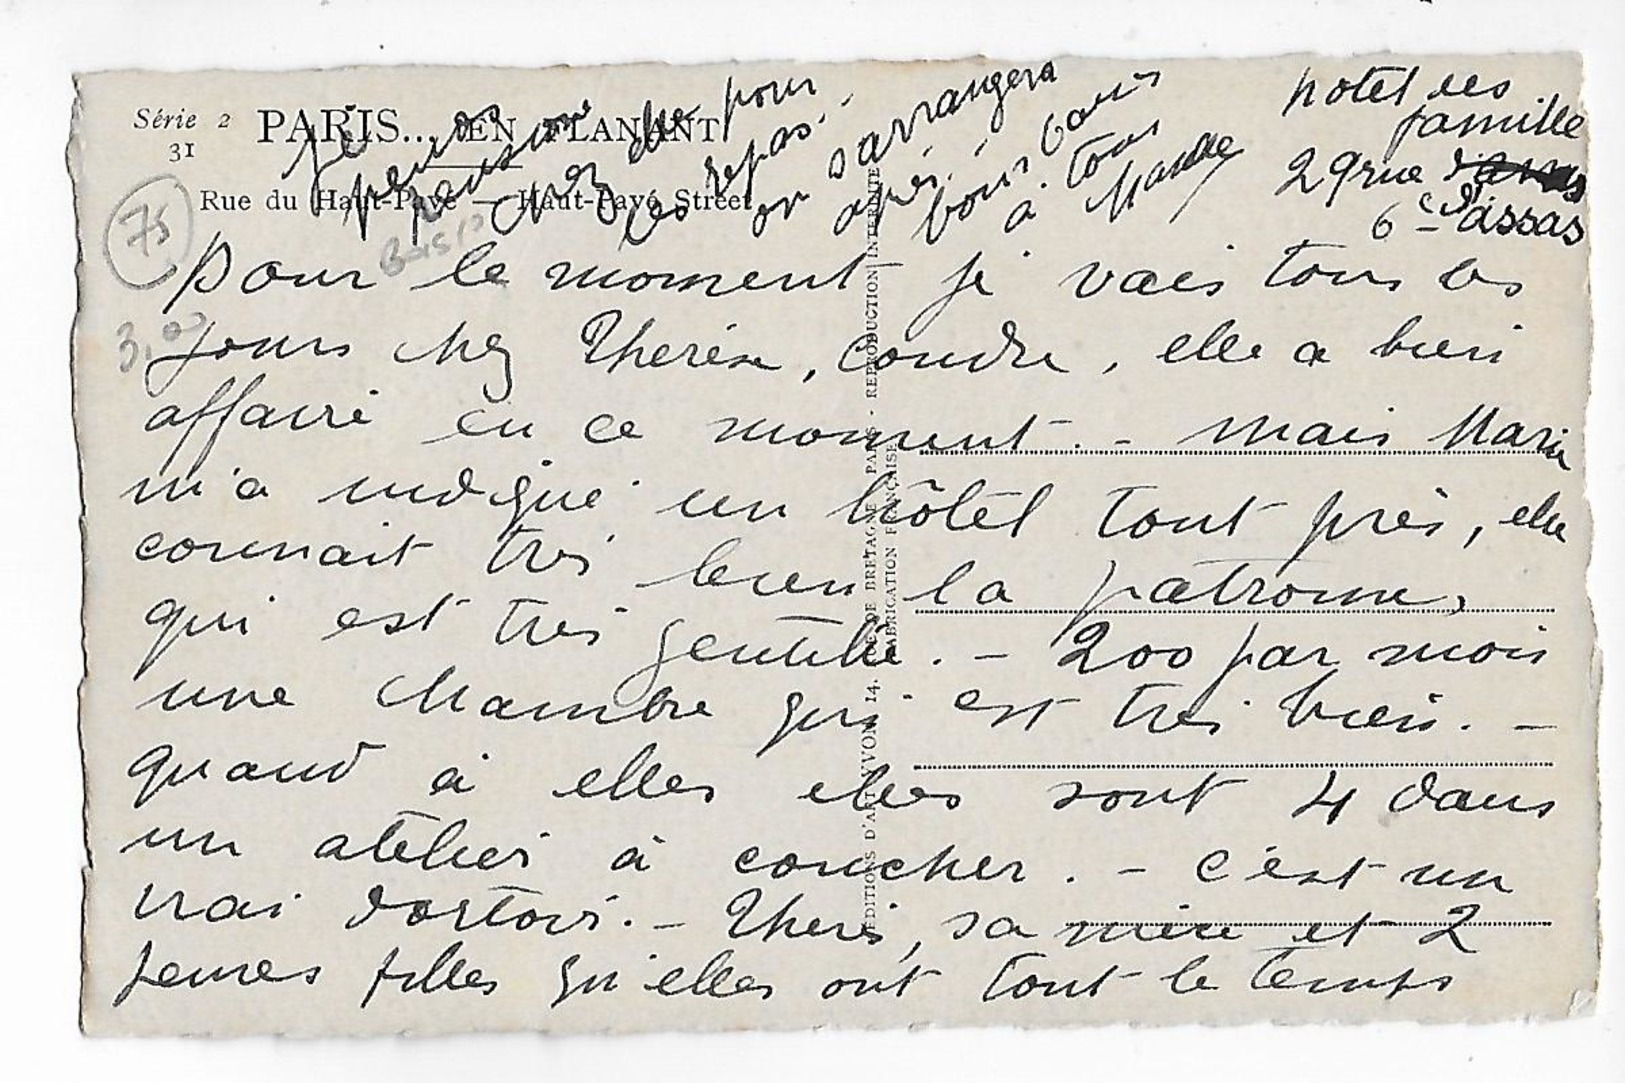 Série 2
31
PARIS... EN FLANANT
Rue du Haut-Pavé — Haut-Pavé Street
75
3,00
Je
prendrai
pension
chez elle pour
les repas.
on s'arrangera
après.
bons baisers
à tous
Maude
hotel des
famille
29 rue
d'assas
6e
Pour le moment je vais tous les
jours chez Thérèse, coudre, elle a bien
affaire en ce moment. - mais Marie
m'a indiqué un hôtel tout près, elle
connait très bien la patronne,
qui est très gentille. - 200 par mois
une chambre qui est très bien. -
quand à elles elles sont 4 dans
un atelier à coucher. - c'est un
vrai dortoir. - Therèse, sa mère et 2
jeunes filles qu'elles ont tout le temps
ÉDITIONS D'ART YVON, 14, RUE DE BRETAGNE, PARIS - REPRODUCTION INTERDITE
FABRICATION FRANÇAISE